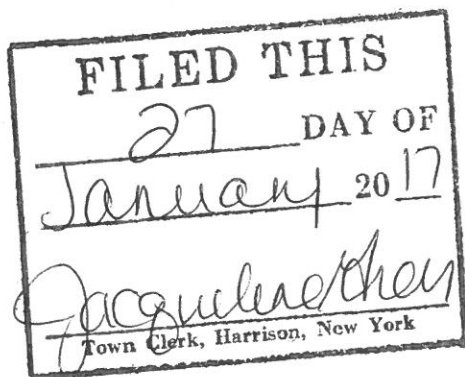 FILED THIS
27 DAY OF
January 20 17
Jacqueline
Town Clerk, Harrison, New York